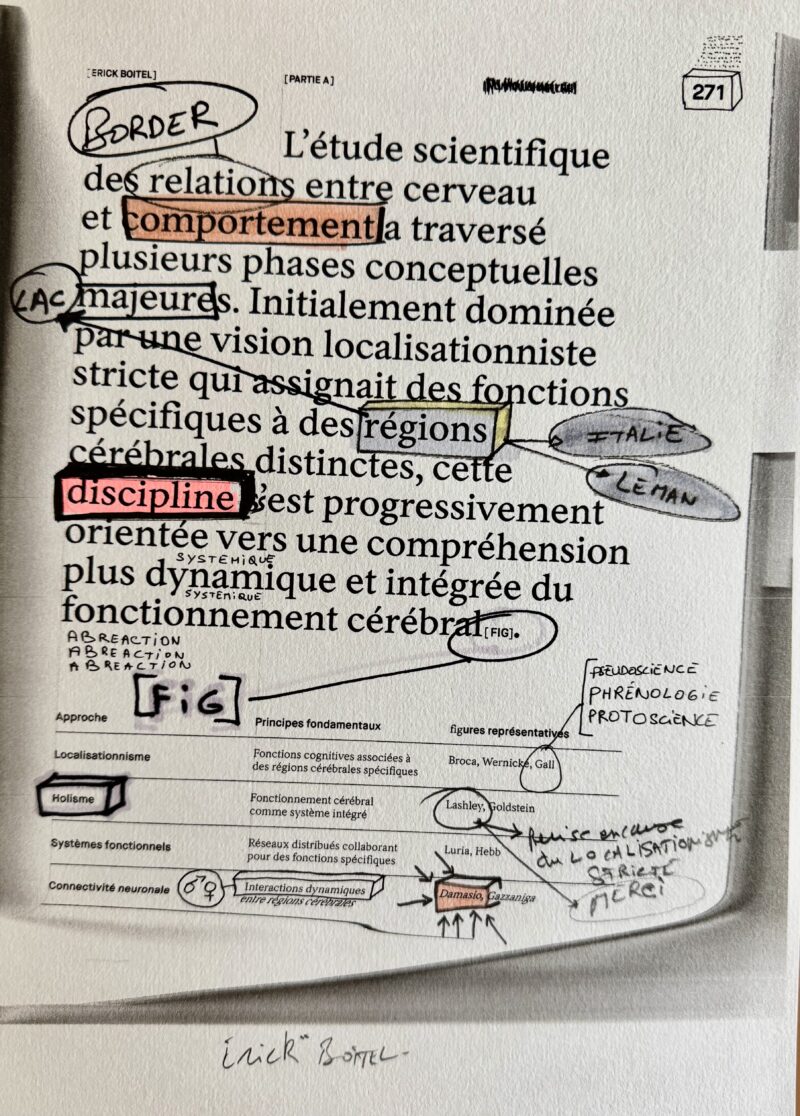 [ERICK BOITEL]
[PARTIE A]
271
BORDER
L'étude scientifique
des relations entre cerveau
et comportement a traversé
plusieurs phases conceptuelles
LAC
majeures. Initialement dominée
par une vision localisationniste
stricte qui assignait des fonctions
spécifiques à des régions
ITALIE
cérébrales distinctes, cette
LEMAN
discipline s'est progressivement
orientée vers une compréhension
SYSTEMIQUE
plus dynamique et intégrée du
SYSTEMIQUE
fonctionnement cérébral [FIG].
ABREACTION
ABREACTION
ABREACTION
[FiG]
PSEUDOSCIENCE
PHRÉNOLOGIE
PROTOSCIENCE
Approche Principes fondamentaux figures représentatives
Localisationnisme Fonctions cognitives associées à Broca, Wernicke, Gall
des régions cérébrales spécifiques
Holisme Fonctionnement cérébral Lashley, Goldstein
comme système intégré
Systèmes fonctionnels Réseaux distribués collaborant Luria, Hebb
pour des fonctions spécifiques
Connectivité neuronale ♂♀ Interactions dynamiques Damasio, Gazzaniga
entre régions cérébrales
du LOCALISATIONISME
STRICTE
MERCI
Erick BOITEL